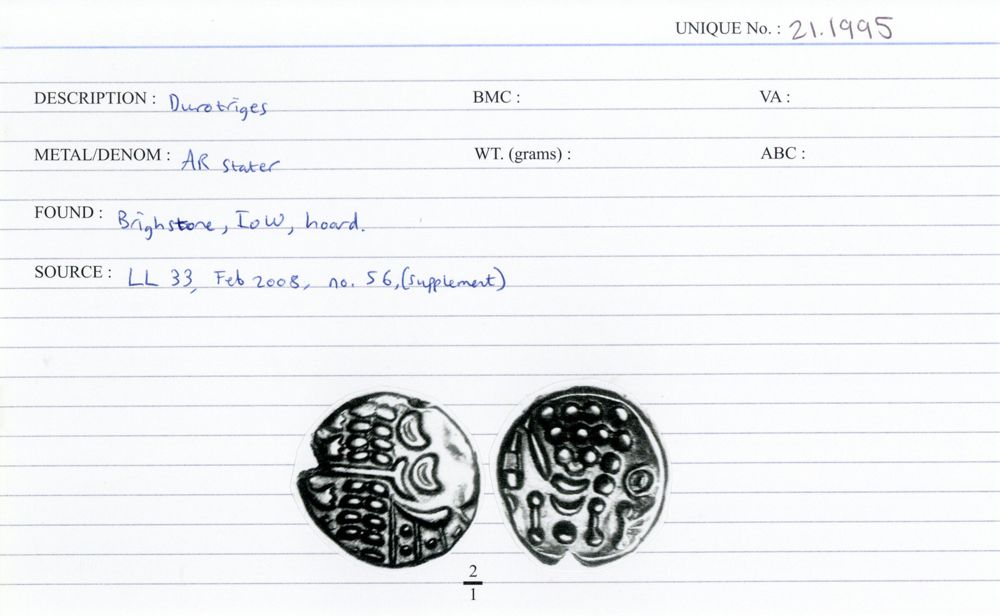 UNIQUE No. : 21.1995
DESCRIPTION : Durotriges BMC : VA :
METAL/DENOM : AR Stater WT. (grams) : ABC :
FOUND : Brighstone, IoW, hoard.
SOURCE : LL 33, Feb 2008, no. 56, (supplement)
2
1